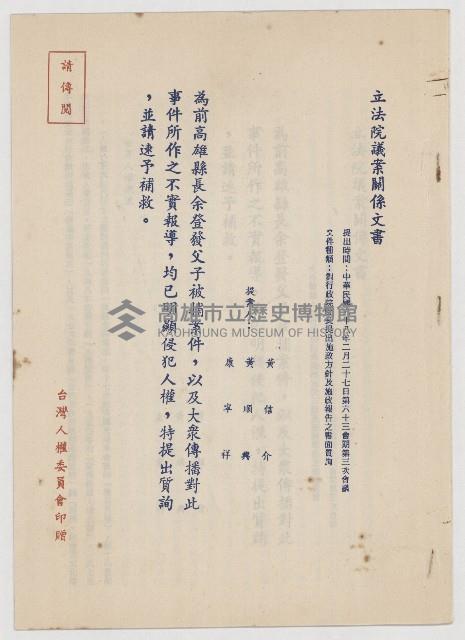 立法院議案關係文書
提出時間：中華民國六十八年二月二十七日第六十三會期第三次會議
文件種類：對行政院院長提出施政方針及施政報告之書面質詢
提案人：
黃信介
黃順興
康寧祥
為前高雄縣長余登發父子被捕案件，以及大眾傳播對此
事件所作之不實報導，均已明顯侵犯人權，特提出質詢
，並請速予補救。
請傳閱
台灣人權委員會印贈
高雄市立歷史博物館
KAOHSIUNG MUSEUM OF HISTORY